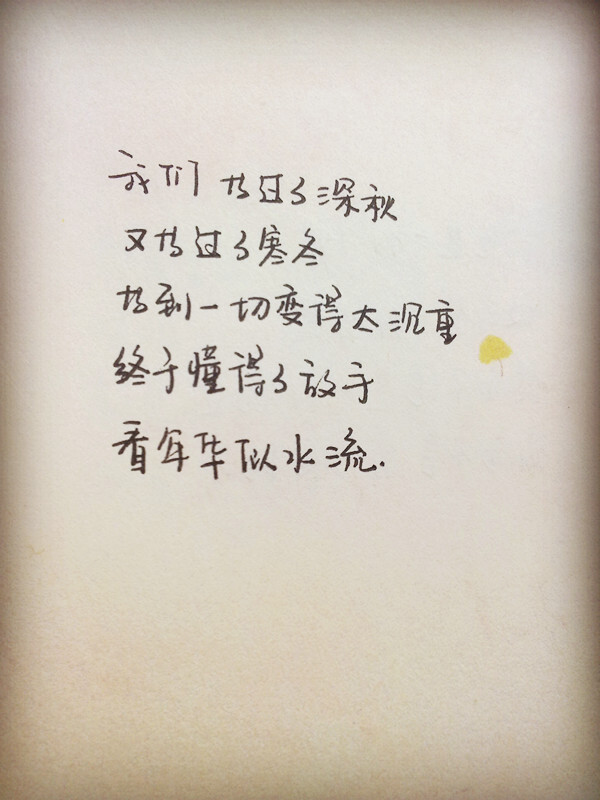 我们等过了深秋
又等过了寒冬
等到一切变得太沉重
终于懂得了放手
看年华似水流.